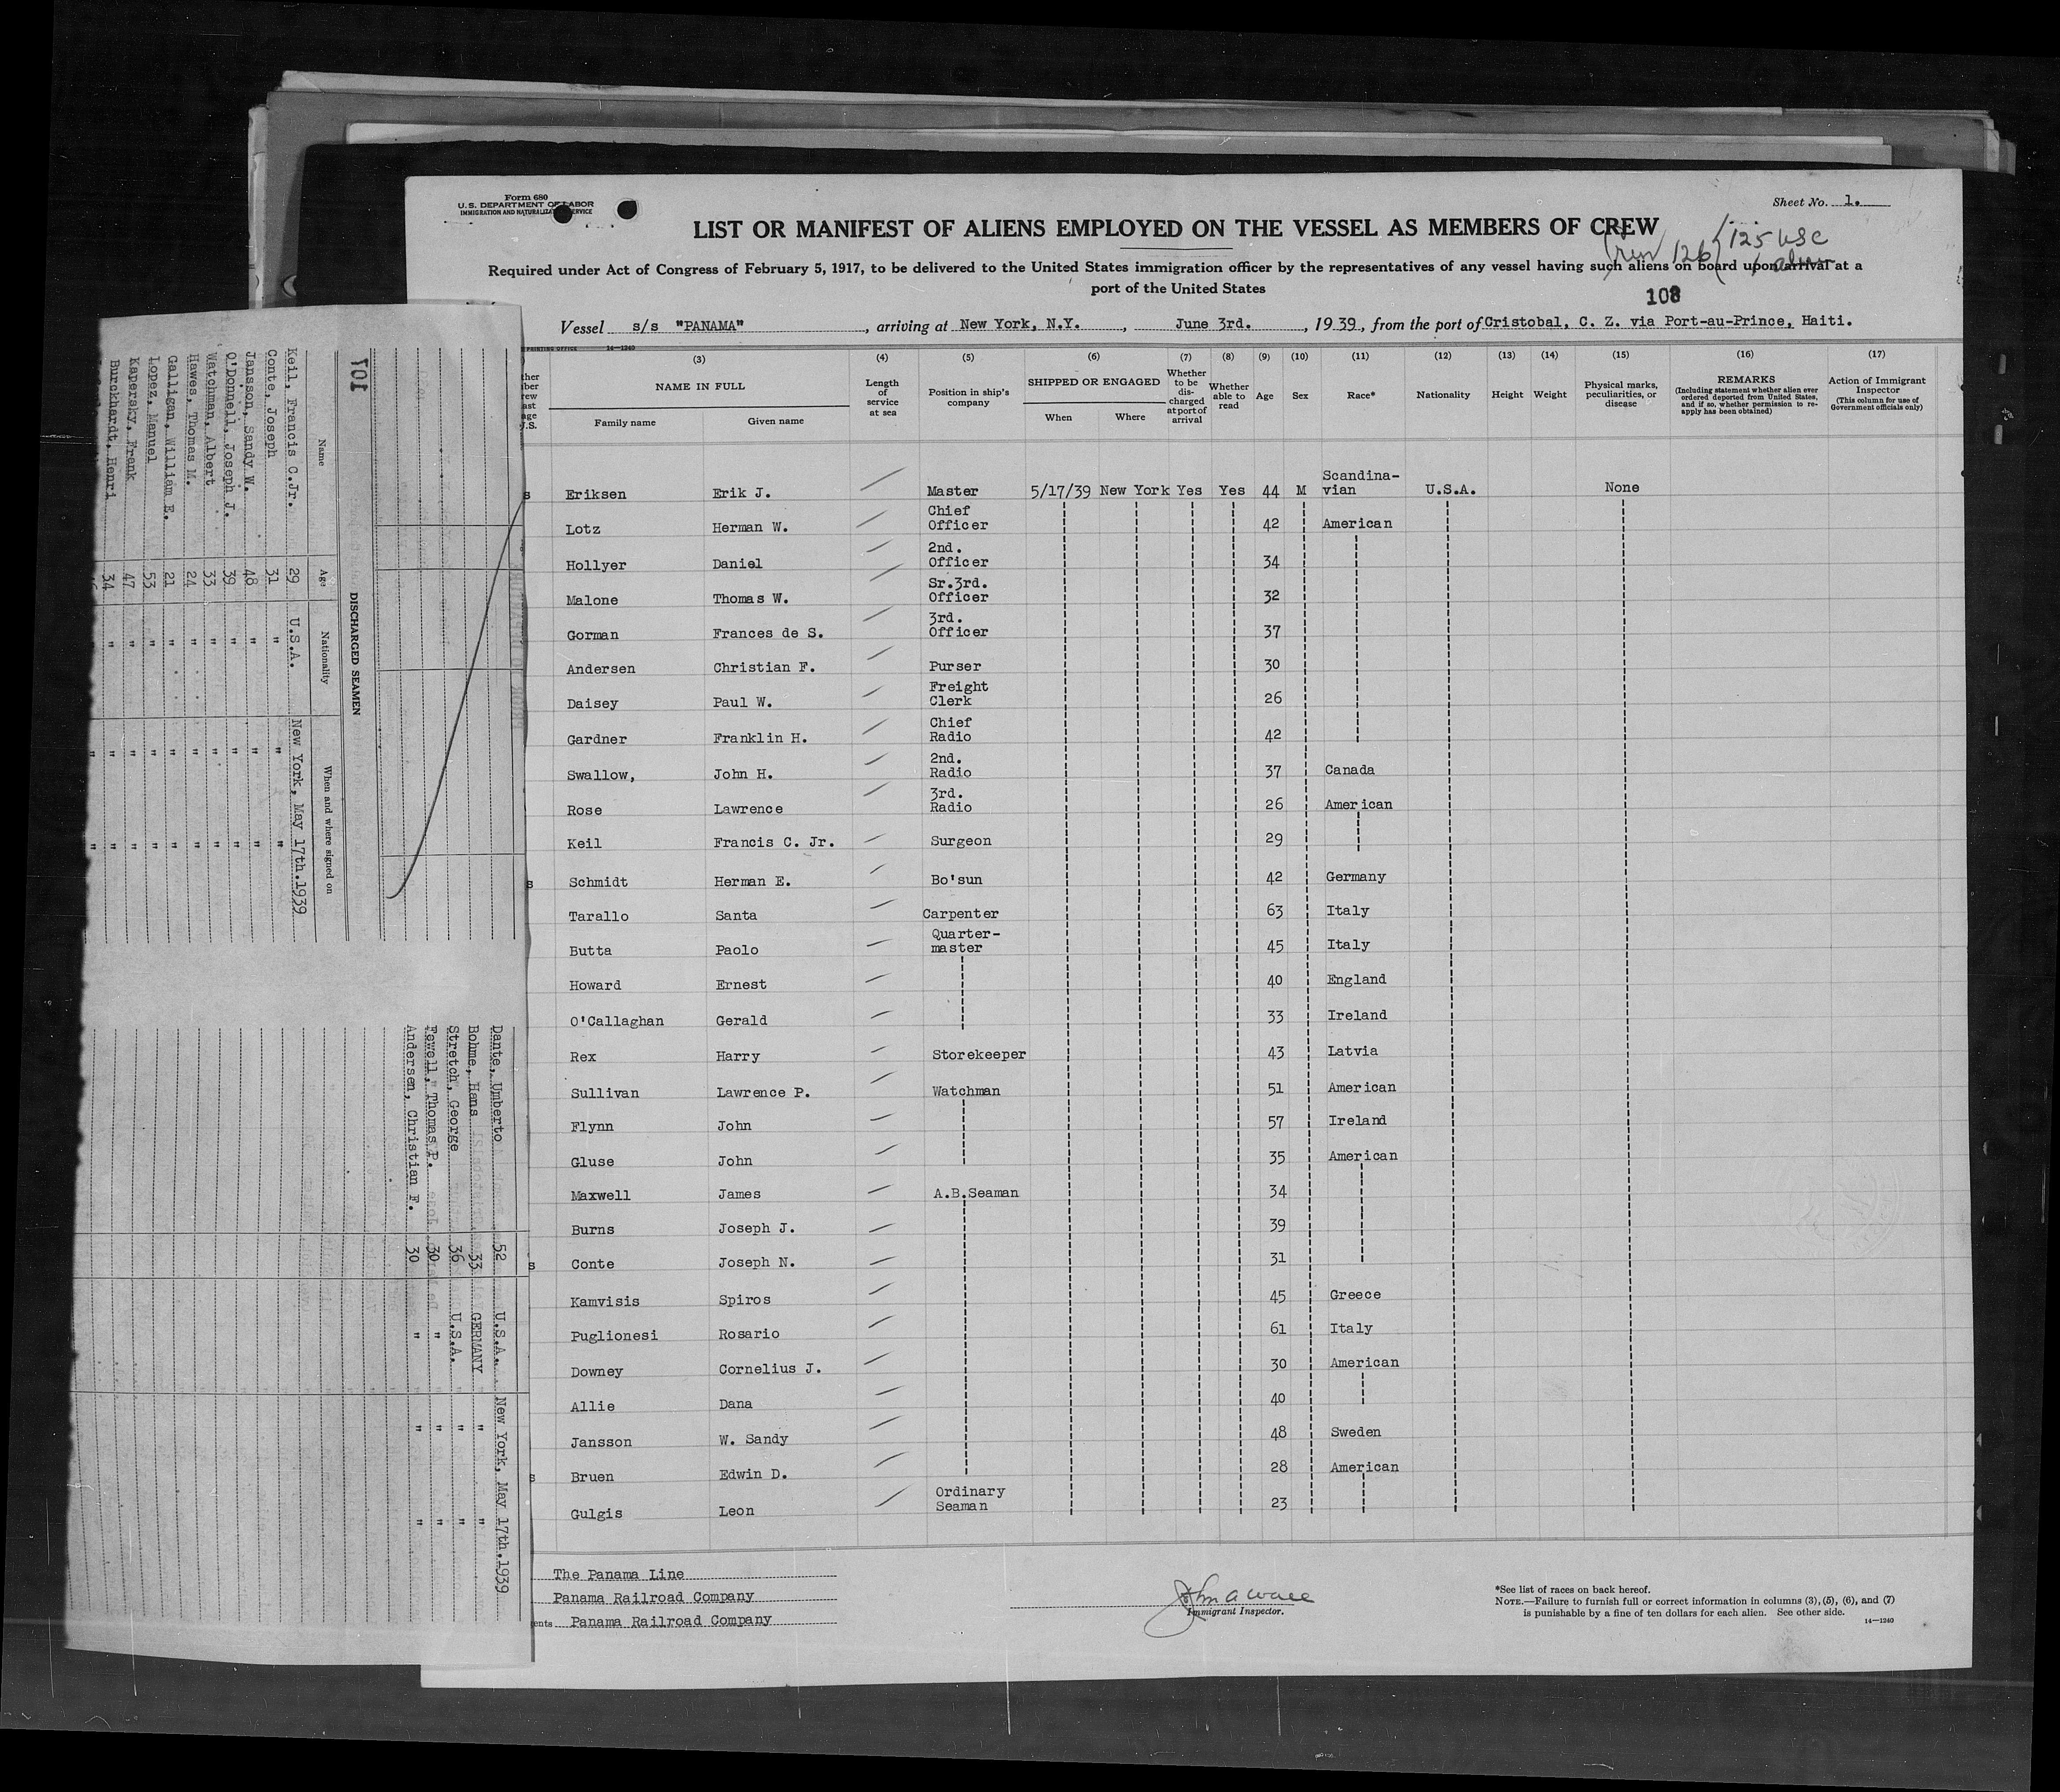 Form 680
U.S. DEPARTMENT OF LABOR
IMMIGRATION AND NATURALIZATION SERVICE
Sheet No. 1.
LIST OR MANIFEST OF ALIENS EMPLOYED ON THE VESSEL AS MEMBERS OF CREW
126 125 USC
Required under Act of Congress of February 5, 1917, to be delivered to the United States immigration officer by the representatives of any vessel having such aliens on board upon arrival at a
port of the United States
108
Vessel s/s "PANAMA", arriving at New York, N.Y., June 3rd., 1939, from the port of Cristobal, C. Z. via Port-au-Prince, Haiti.
PRINTING OFFICE 14—1240
(3) (4) (5) (6) (7) (8) (9) (10) (11) (12) (13) (14) (15) (16) (17)
NAME IN FULL
Family name Given name
Length of service at sea
Position in ship's company
SHIPPED OR ENGAGED
When Where
Whether to be discharged at port of arrival
Whether able to read
Age Sex Race* Nationality Height Weight
Physical marks, peculiarities, or disease
REMARKS
(Including statement whether alien ever ordered deported from United States, and if so, whether permission to re-apply has been obtained)
Action of Immigrant Inspector
(This column for use of Government officials only)
Eriksen Erik J. Master 5/17/39 New York Yes Yes 44 M Scandina-vian U.S.A. None
Lotz Herman W. Chief Officer 42 American
Hollyer Daniel 2nd. Officer 34
Malone Thomas W. Sr.3rd. Officer 32
Gorman Frances de S. 3rd. Officer 37
Andersen Christian F. Purser 30
Daisey Paul W. Freight Clerk 26
Gardner Franklin H. Chief Radio 42
Swallow, John H. 2nd. Radio 37 Canada
Rose Lawrence 3rd. Radio 26 American
Keil Francis C. Jr. Surgeon 29
Schmidt Herman E. Bo'sun 42 Germany
Tarallo Santa Carpenter 63 Italy
Butta Paolo Quarter-master 45 Italy
Howard Ernest 40 England
O'Callaghan Gerald 33 Ireland
Rex Harry Storekeeper 43 Latvia
Sullivan Lawrence P. Watchman 51 American
Flynn John 57 Ireland
Gluse John 35 American
Maxwell James A.B.Seaman 34
Burns Joseph J. 39
Conte Joseph N. 31
Kamvisis Spiros 45 Greece
Puglionesi Rosario 61 Italy
Downey Cornelius J. 30 American
Allie Dana 40
Jansson W. Sandy 48 Sweden
Bruen Edwin D. 28 American
Gulgis Leon Ordinary Seaman 23
The Panama Line
Panama Railroad Company
Panama Railroad Company
Immigrant Inspector.
*See list of races on back hereof.
NOTE.—Failure to furnish full or correct information in columns (3), (5), (6), and (7)
is punishable by a fine of ten dollars for each alien. See other side.
14—1240
101
DISCHARGED SEAMEN
Name Age Nationality When and where signed on
Keil, Francis C.Jr. 29 U.S.A. New York, May 17th.1939
Conte, Joseph 31 " " "
Jansson, Sandy W. 48 " " "
O'Donnell, Joseph J. 39 " " "
Watchman, Albert 33 " " "
Hawes, Thomas M. 24 " " "
Galligan, William E. 21 " " "
Lopez, Manuel 53 " " "
Kapersky, Frank 47 " " "
Burckhardt, Henri 34 " " "
Dante, Umberto 52 U.S.A. New York, May 17th.1939
Bohme, Hans 33 GERMANY " "
Stretch, George 36 U.S.A. " "
Fewell, Thomas P. 30 " " "
Andersen, Christian F. 30 " " "